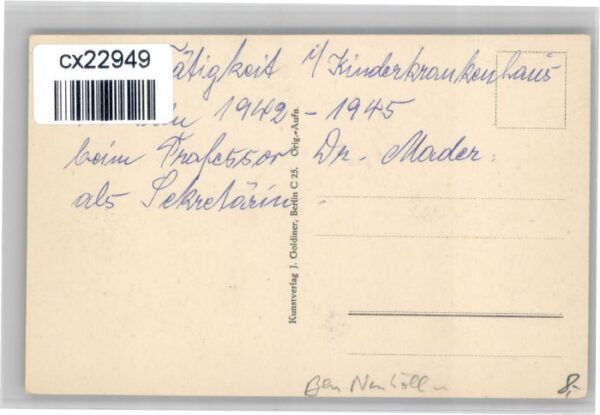 cx22949
Tätigkeit i/ Kinderkrankenhaus
1942 - 1945
beim Professor Dr. Mader.
als Sekretärin.
Kunstverlag J. Goldiner, Berlin C 25. Orig.-Aufn.
Neukölln
8,-